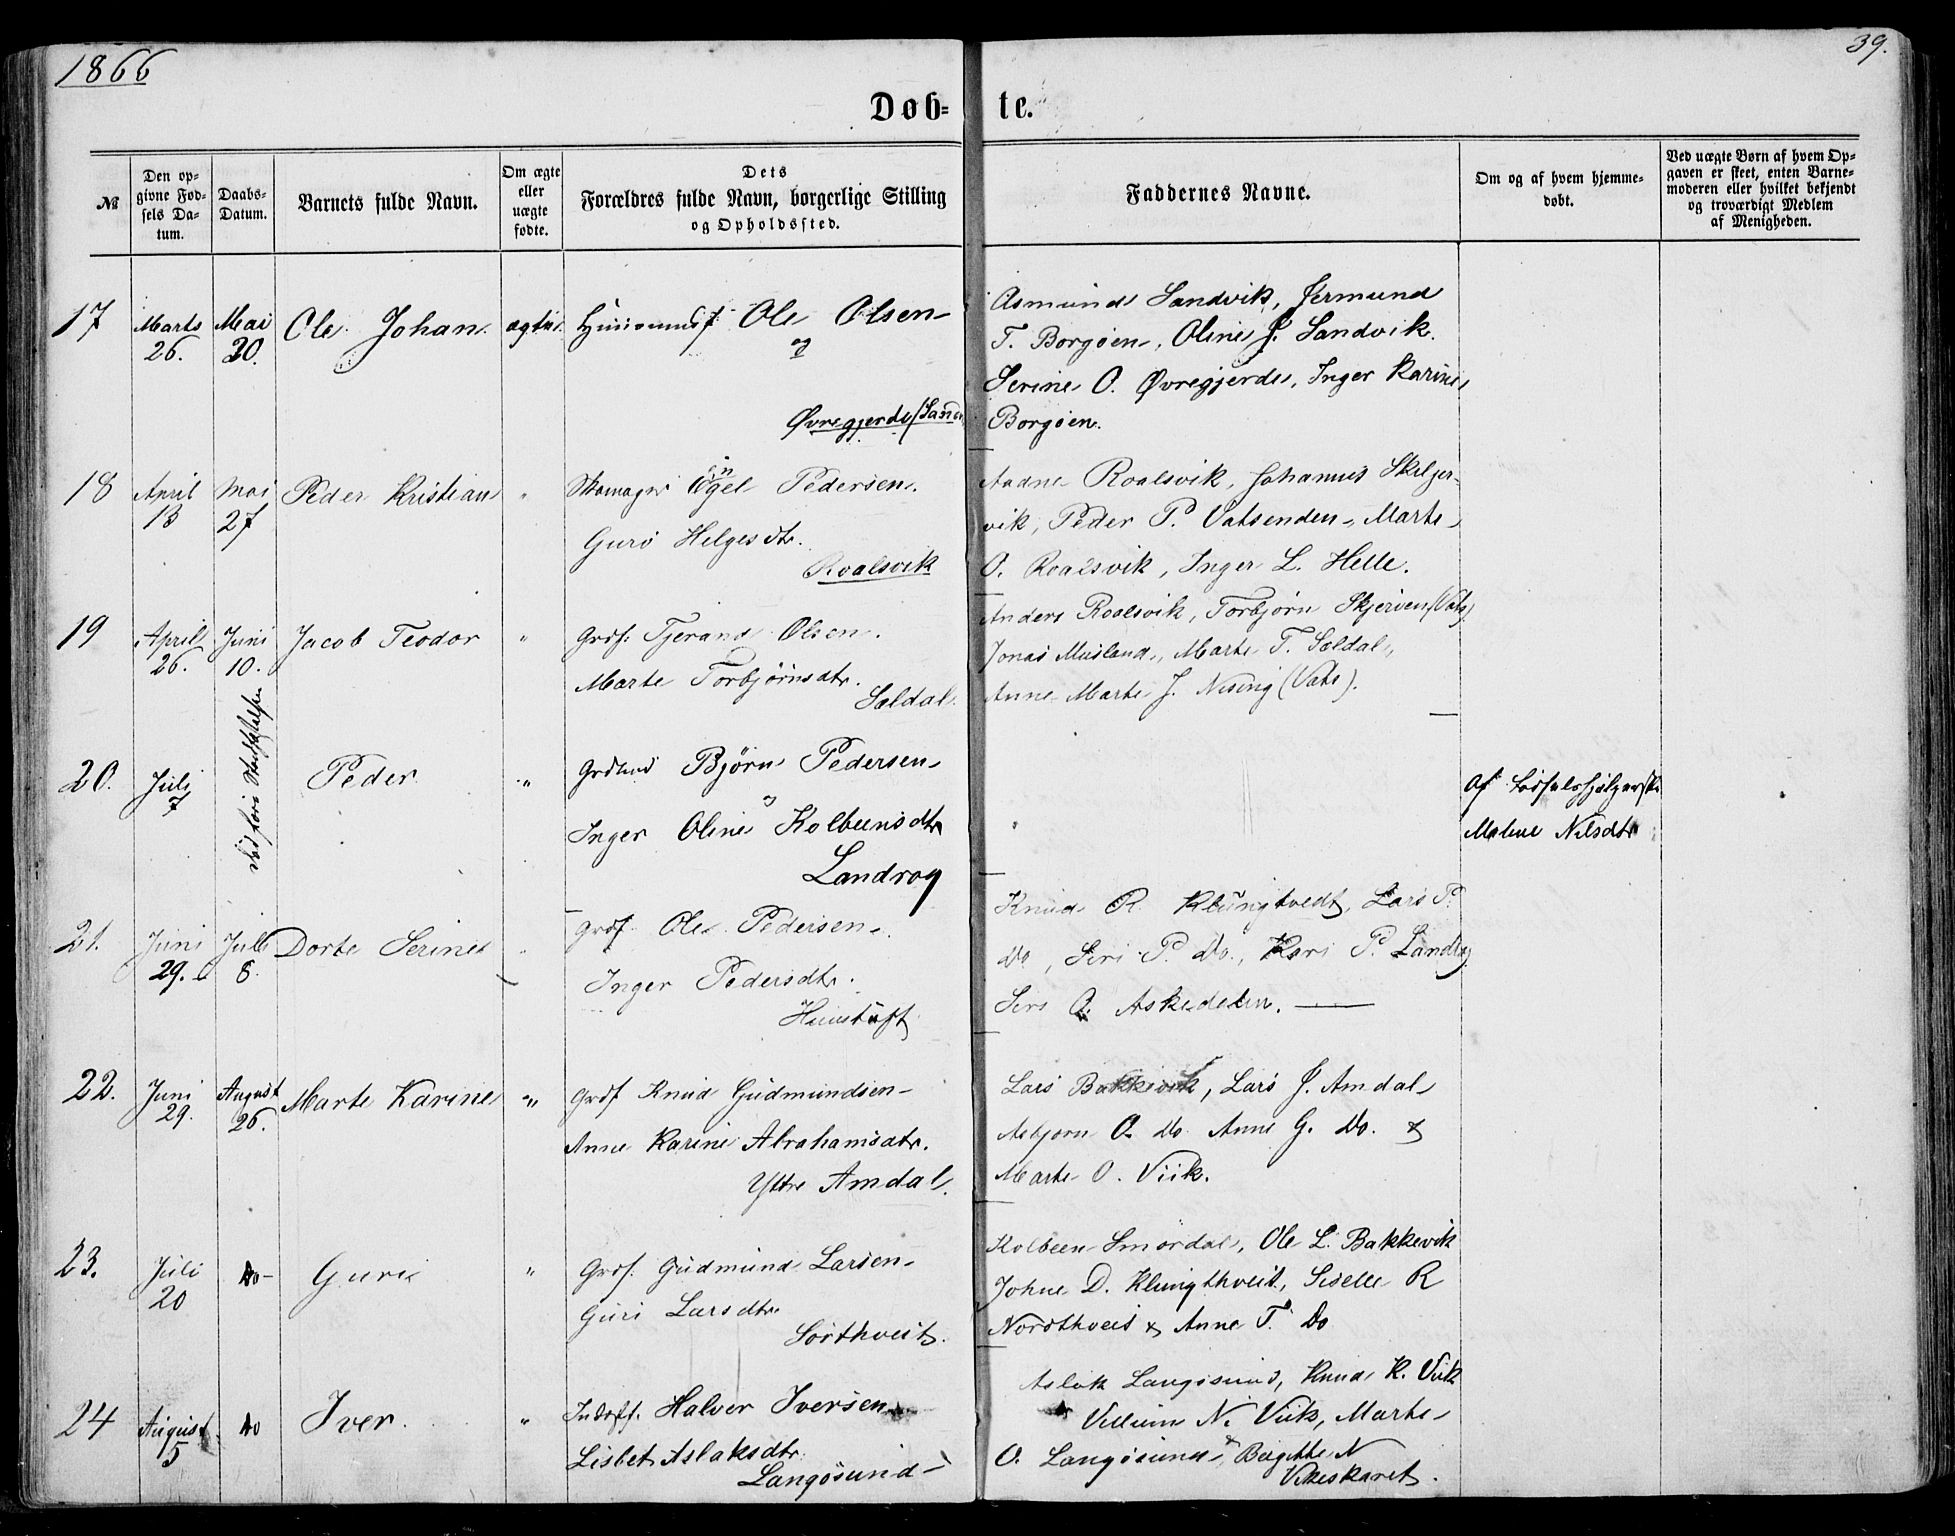 1866
39.
Døbte.
№
Den opgivne Fødsels Datum.
Daabs-Datum.
Barnets fulde Navn.
Om ægte eller uægte fødte.
Dets Forældres fulde Navn, borgerlige Stilling og Opholdssted.
Faddernes Navne.
Om og af hvem hjemmedøbt.
Ved uægte Børn af hvem Opgaven er skeet, enten Barnemoderen eller hvilket bekjendt og troværdigt Medlem af Menigheden.
17 Marts 26. Mai 20. Ole Johan ægte Ole Olsen
og
Øvregjerde/Sand
Asmund Sandvik, Jermund
T. Borgøen, Oline J. Sandvik.
Serine O. Øvregjerde, Inger Karine
Borgøen.
18 April 13 Mai 27 Peder Kristian " Skomager Pedersen.
Guro Helgesdtr.
Roalsvik
Aadne Roalsvik, Johannes Skeljer-
vik, Peder P. Vatsenden, Marte
O. Roalsvik, Inger L. Helle.
19 April 26. Juni 10. Jacob Teodor " Grdf. Tjerand Olsen.
Marte Torbjørnsdtr.
Sældal.
Anders Roalsvik, Torbjørn Skjerven (Vats)
Jonas Musland, Marte T. Sældal,
Anne Marte J. Nising (Vats).
20. Juli 7 død før Stadfæstelse Peder " Grdmd Bjørn Pedersen
og
Inger Oline Kolbensdtr
Landrog
Af
Malene Nilsdtr
21. Juni 29. Juli 8. Dorte Serine " Grdf. Ole Pedersen
Inger Pedersdtr.
Knud R. Klungtvedt, Lars P.
Do, Siri P. Do., Kari P. Landrog
Siri O. Askedalen.
22. Juni 29. August 26. Marte Karine " Grdf Knud Gudmundsen
Anne Karine Abrahamsdtr.
Yttre Amdal.
Lars Bakkevik, Lars J. Amdal
Asbjørn O. Do Anne G. Do. &
Marte O. Viik.
23. Juli 20 Do Guri " Grdf. Gudmund Larsen
Guri Larsdtr.
Sørthveit.
Kolbeen Smørdal, Ole L. Bakkevik
Johne D. Klungthveit, Siselle R
Nordthveit & Anne T. Do
24 August 5 Do Iver. " Halver Iversen
Lisbet Aslaksdtr.
Langøsund
Aslak Langøsund, Knud K. Viik
Villum N. Viik, Marte
O. Langøsund & Birgitte N
Vikeskaret.